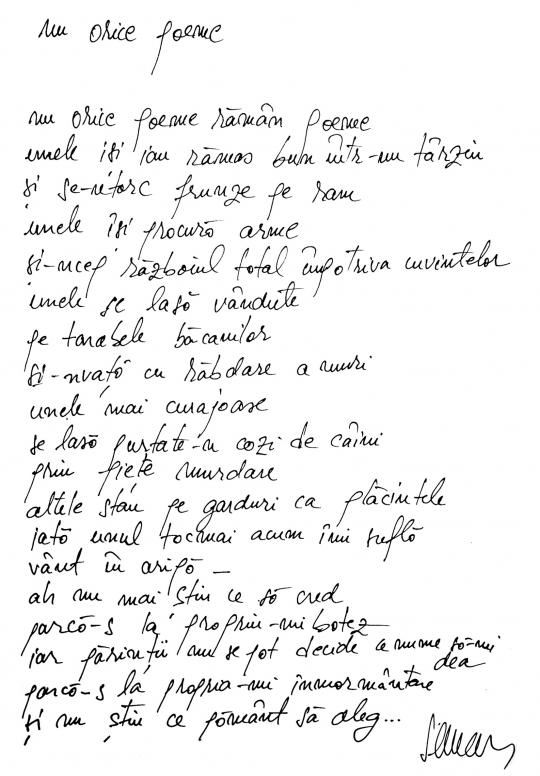 nu orice poeme
nu orice poeme rămân poeme
unele iși iau rămas bun într-un târziu
și se-ntorc frunze pe ram
unele își procură arme
și-ncep războiul total împotriva cuvintelor
unele se lasă vândute
pe tarabele băcanilor
și-nvață cu răbdare a muri
unele mai curajoase
se lasă purtate-n cozi de câini
prin piețe murdare
altele stau pe garduri ca plăcintele
iată unul tocmai acum îmi suflă
vânt în aripă –
ah nu mai știu ce să cred
parcă-s la propriu-mi botez
iar părinții nu se pot decide ce nume să-mi
dea
parcă-s la propria-mi înmormântare
și nu știu ce pământ să aleg...